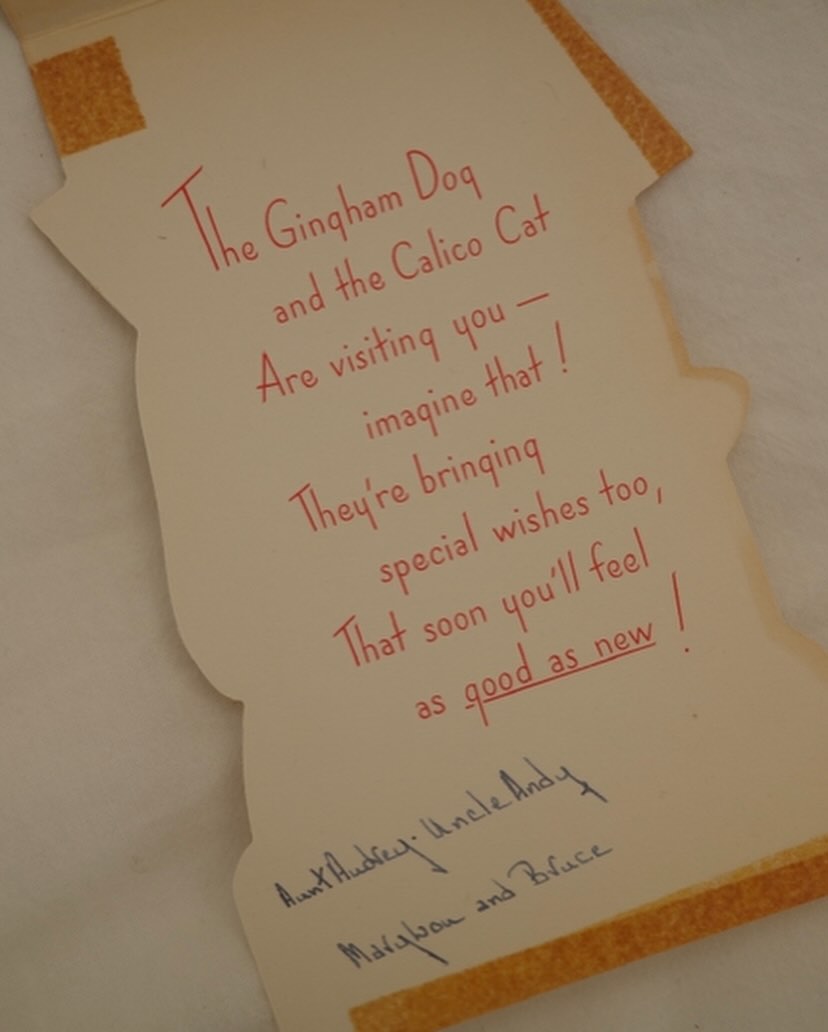 The Gingham Dog
and the Calico Cat
Are visiting you —
imagine that!
They're bringing
special wishes too,
That soon you'll feel
as good as new!
Aunt Audrey. Uncle Andy
Marylou and Bruce